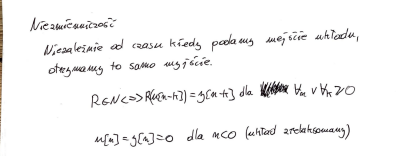 Niezmienniczość
Niezależnie od czasu kiedy podamy wejście układu,
otrzymamy to samo wyjście.
R∈N <=> R(u[n-k]) = y[n-k] dla ∀n ∨ ∀k≥0
u[n] = y[n] = 0 dla n<0 (układ zrelaksowany)